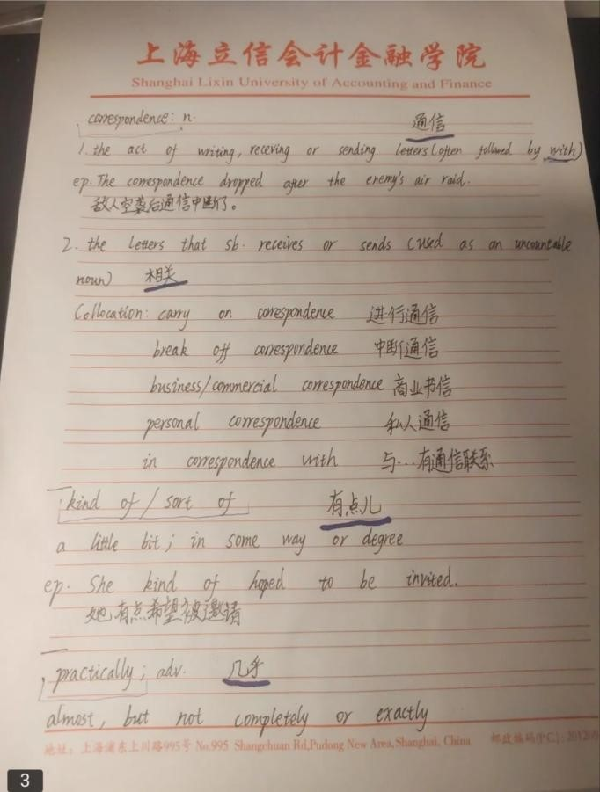 上海立信会计金融学院
Shanghai Lixin University of Accounting and Finance
correspondence: n. 通信
1. the act of writing, receving or sending letters (often followed by with)
ep. The correspondence dropped after the enemy's air raid.
敌人空袭后通信中断了。
2. the letters that sb. receives or sends (used as an uncountable
noun) 相关
Collocation: carry on correspondence 进行通信
break off correspondence 中断通信
business/commercial correspondence 商业书信
personal correspondence 私人通信
in correspondence with 与…有通信联系
kind of / sort of 有点儿
a little bit; in some way or degree
ep. She kind of hoped to be invited.
她有点希望被邀请
practically; adv. 几乎
almost, but not completely or exactly
地址：上海浦东上川路995号 No.995 Shangchuan Rd,Pudong New Area, Shanghai, China 邮政编码
3